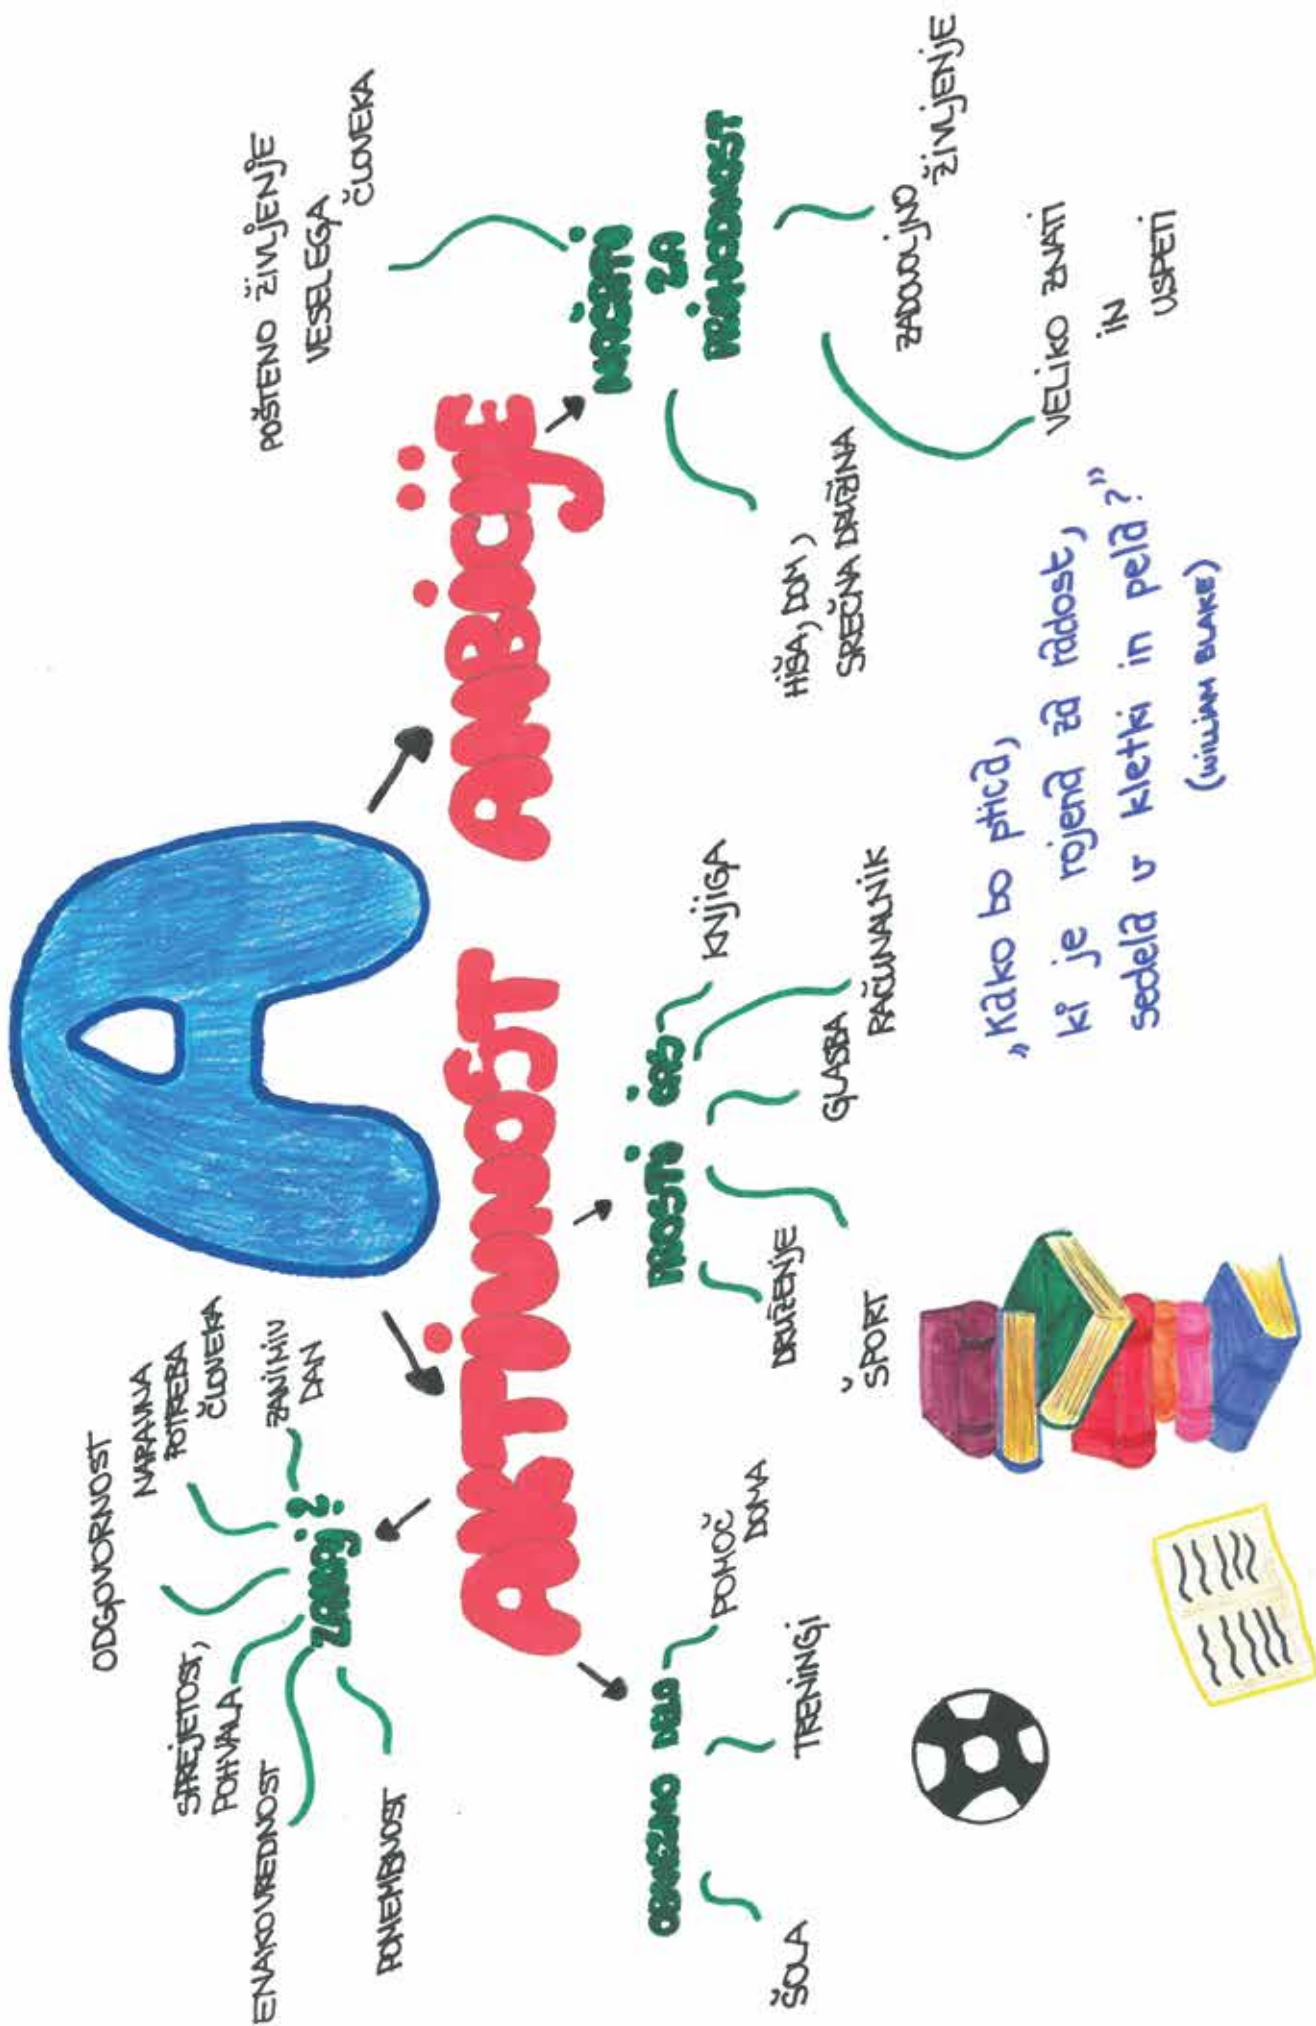 A
AKTIVNOST
AMBICIJE
ZAKAJ?
ODGOVORNOST
NARAVNA
POTREBA
ČLOVEKA
ZANIMIV
DAN
SPREJETOST,
POHVALA
ENAKOVREDNOST
POMEMBNOST
OBVEZNO DELO
ŠOLA
TRENINGI
POMOČ
DOMA
PROSTI ČAS
DRUŽENJE
ŠPORT
GLASBA
RAČUNALNIK
KNJIGA
NAČRTI
ZA
PRIHODNOST
POŠTENO ŽIVLJENJE
VESELEGA
ČLOVEKA
HIŠA, DOM,
SREČNA DRUŽINA
ZADOVOLJNO
ŽIVLJENJE
VELIKO ZNATI
IN
USPETI
„Kako bo ptica,
ki je rojena za radost,
sedela v kletki in pela?”
(WILLIAM BLAKE)